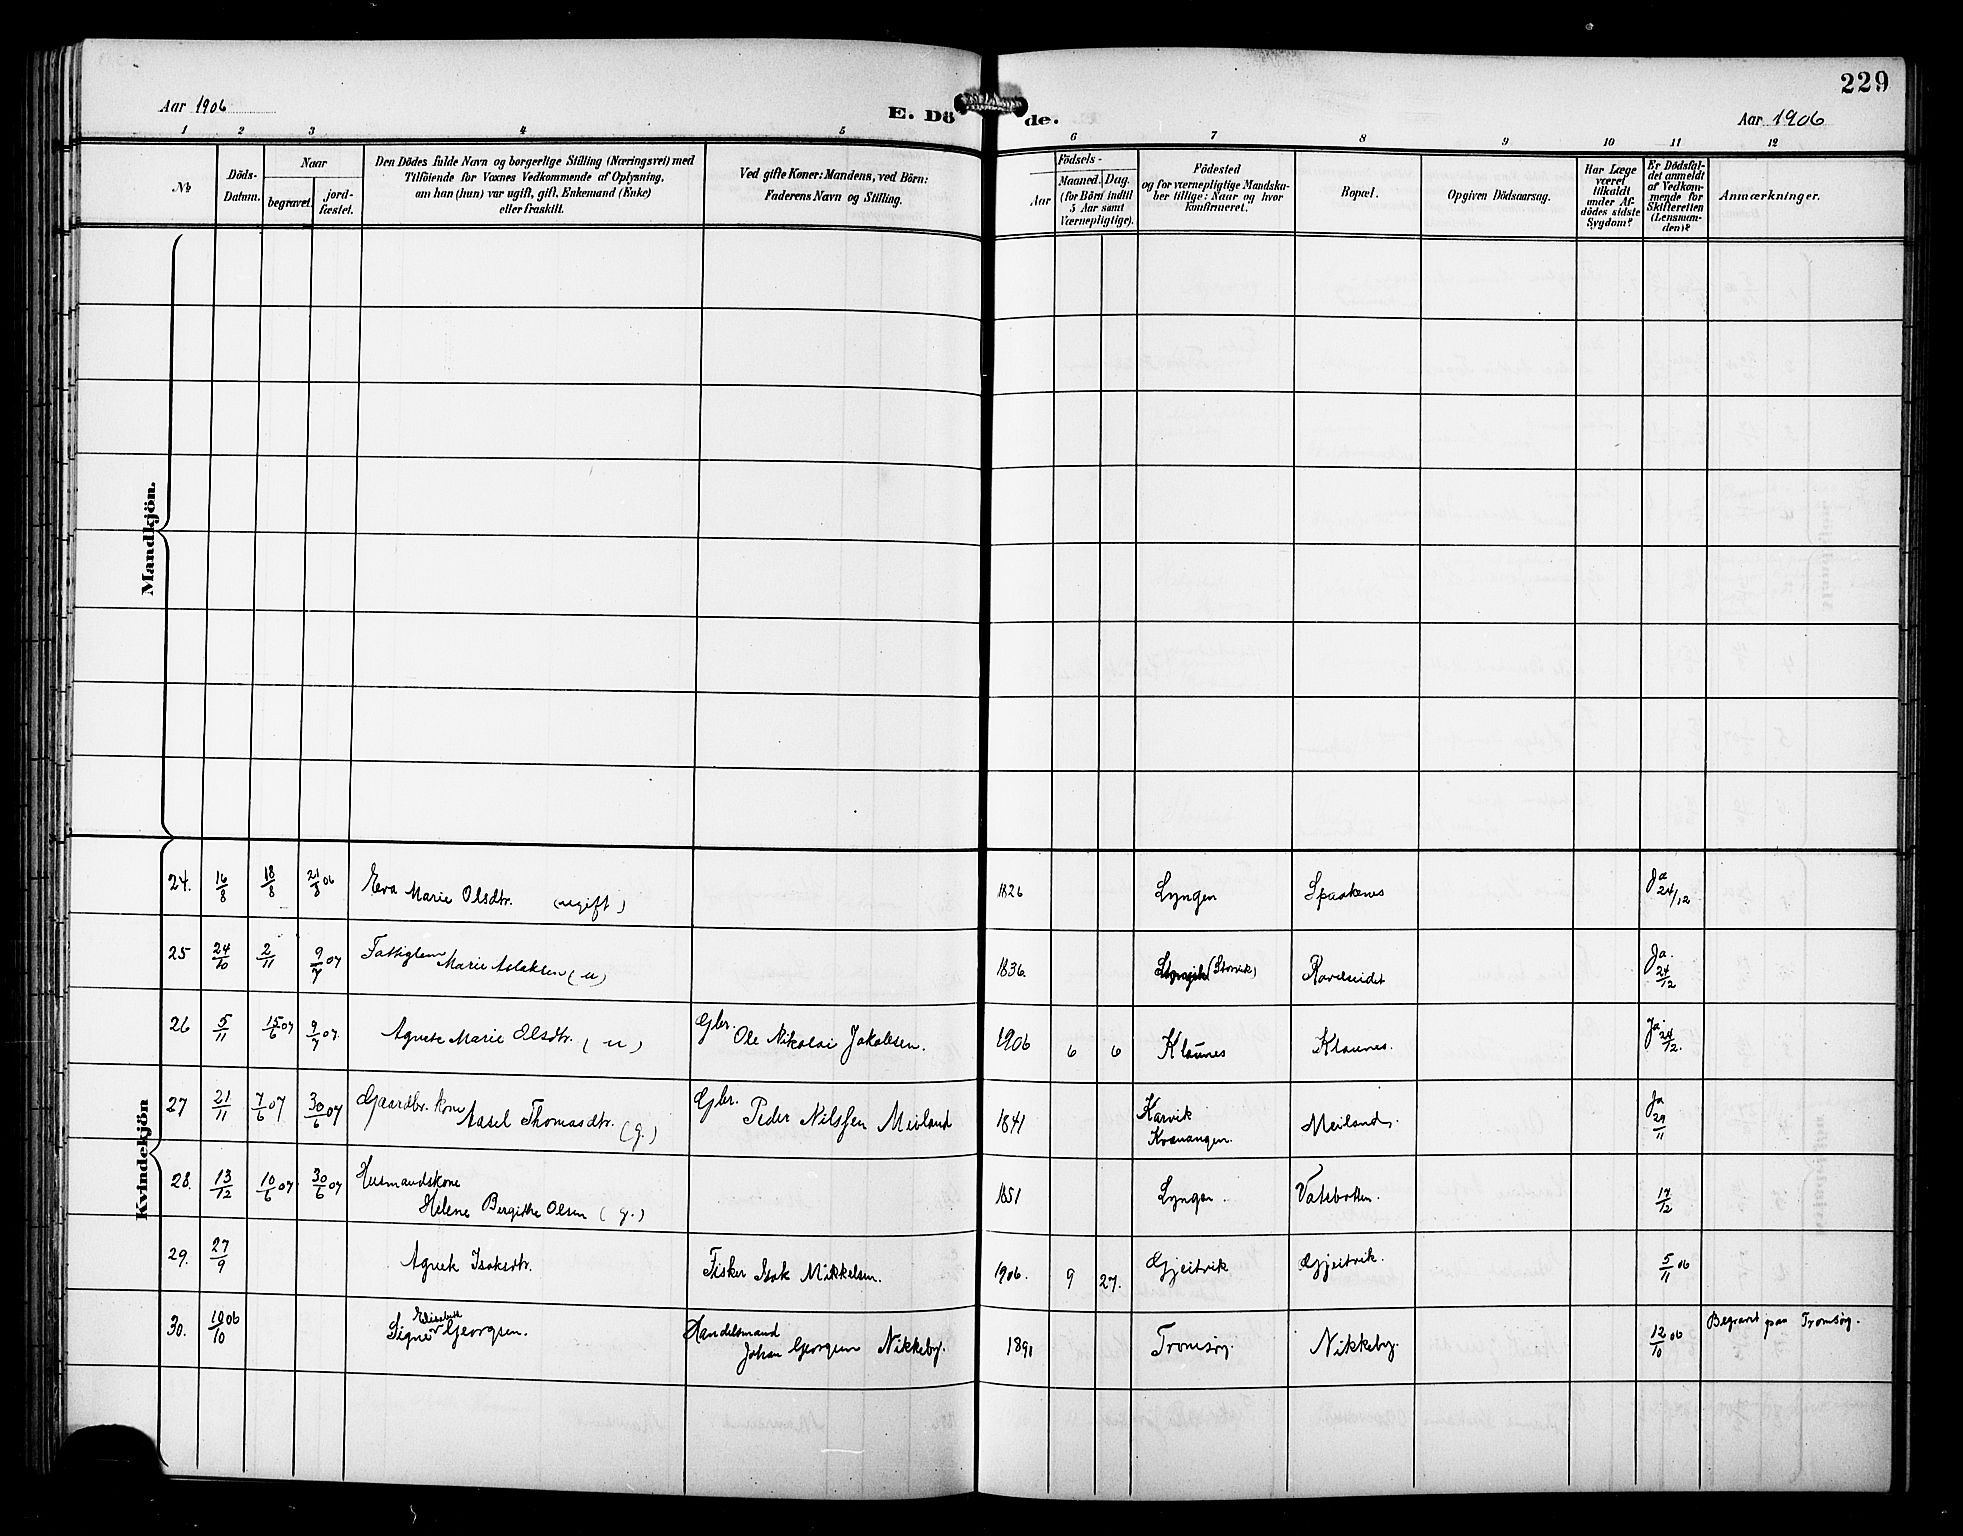 229
Aar 1906
E. Döde.
Aar 1906
1 2 3 4 5 6 7 8 9 10 11 12
No
Döds-Datum.
Naar
begravet.
jord-fæstet.
Den Dödes fulde Navn og borgerlige Stilling (Næringsvei) med
Tilföiende for Voxnes Vedkommende af Oplysning,
om han (hun) var ugift, gift, Enkemand (Enke)
eller fraskilt.
Ved gifte Koner: Mandens, ved Börn:
Faderens Navn og Stilling.
Aar
Födsels-
Maaned. Dag.
(for Börn indtil
5 Aar samt
Værnepligtige).
Födested
og for værnepligtige Mandska-
ber tillige: Naar og hvor
konfirmeret.
Bopæl.
Opgiven Dödsaarsag.
Har Læge
været
tilkaldt
under Af-
dödes sidste
Sygdom?
Er Dödsfal-
det anmeldt
af Vedkom-
mende for
Skifteretten
(Lensman-
den)?
Anmærkninger.
Mandkjön.
Kvindekjön
24. 16/8 18/8 21/8 06 Eva Marie Olsdtr. (ugift) 1826 Lyngen Spaakenes Ja 24/12
25 24/10 2/11 9/7 07 Fattiglem Marie Aslaksen (u) 1836. (Storvik) Ravelseidet Ja. 24/12
26 5/11 15/6 07 9/7 07. Agnete Marie Olsdtr. (u) Gbr. Ole Nikolai Jakobsen. 1906 6 6 Klaunes Klaunes. Ja 24/12.
27 21/11 7/6 07 30/6 07 Gaardbr. kone Aasel Thomasdtr. (g.) Gbr. Peder Nilssen Meiland 1841 Karvik Kvænangen. Meiland. Ja 29/11
28. 13/12 10/6 07 30/6 07 Husmandskone
Helene Bergithe Olsen (g.) 1851 Lyngen. Vatsbotten. 17/12
29. 27/9 Agnete Isaksdtr. Fisker Isak Mikkelsen. 1906. 9 27. Gjeitvik Gjeitvik. 5/11 06
30. 10/10 06 Signe Elisabeth Georgsen. Handelsmand
Johan Georgsen Nikkeby. 1891 Tromsø. Nikkeby. 12/10 06 Begravet paa Tromsø.